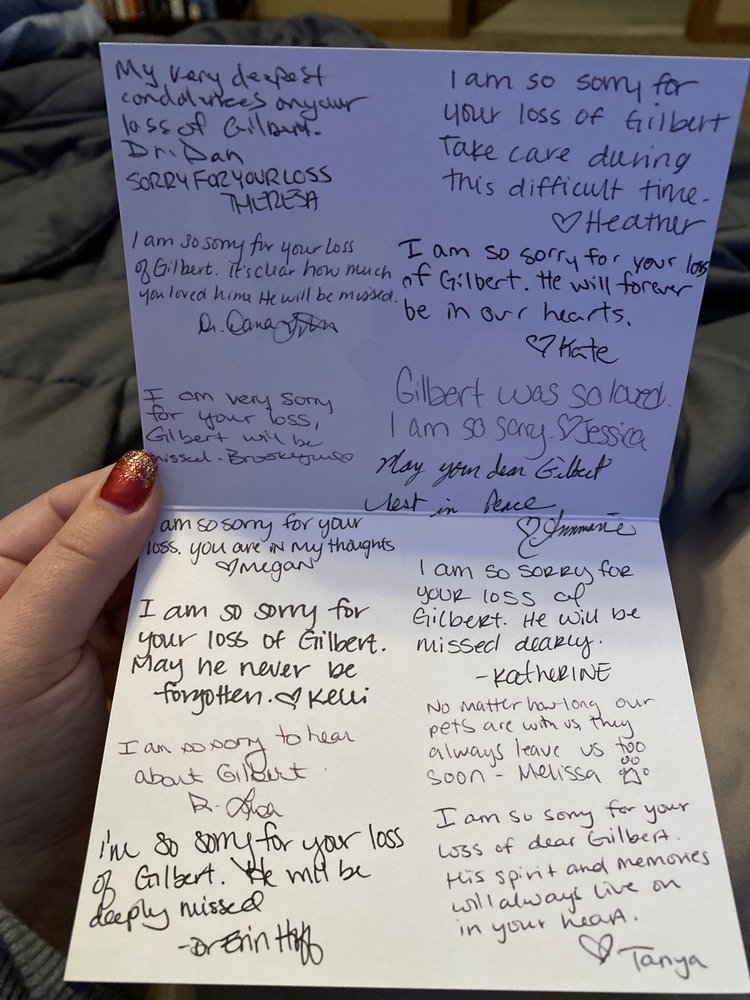 My very deepest
condolences on your
loss of Gilbert.
Dr. Dan
SORRY FOR YOUR LOSS
THERESA
I am so sorry for your loss
of Gilbert. It's clear how much
you loved him. He will be missed.
Dr. Dana
I am very sorry
for your loss,
Gilbert will be
missed. Brooklynn
I am so sorry for
your loss of Gilbert
Take care during
this difficult time.
♡ Heather
I am so sorry for your loss
of Gilbert. He will forever
be in our hearts.
♡ Kate
Gilbert was so loved.
I am so sorry. ♡ Jessica
May your dear Gilbert
rest in Peace
♡ Annmarie
I am so sorry for your
loss. you are in my thoughts
♡ Megan
I am so sorry for
your loss of Gilbert.
May he never be
forgotten. ♡ Kelli
I am so sorry to hear
about Gilbert.
Dr.
I'm so sorry for your loss
of Gilbert. He will be
deeply missed
- Dr Erin Huff
I am so sorry for
your loss of
Gilbert. He will be
missed dearly.
- Katherine
No matter how long our
pets are with us, they
always leave us too
soon - Melissa
I am so sorry for your
loss of dear Gilbert.
His spirit and memories
will always live on
in your heart.
♡ Tanya